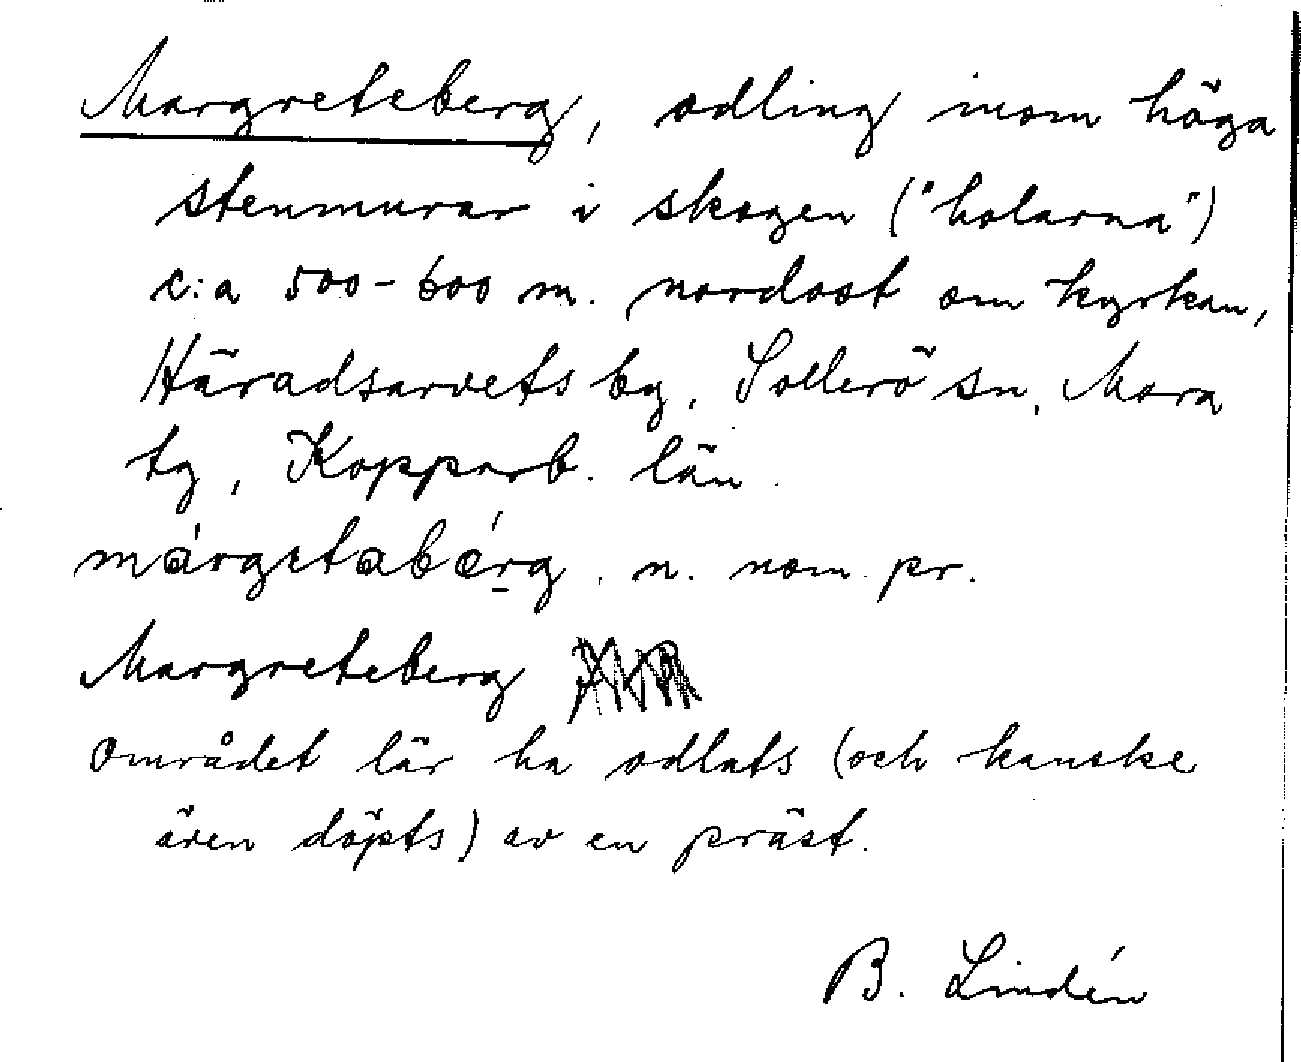 Margreteberg, odling inom höga
stenmurar i skogen ("holarna")
c:a 500-600 m. nordost om kyrkan,
Häradsarvets by, Sollerö sn, Mora
tg, Kopparb. län.
márgetabérg. n. nom. pr.
Margreteberg
Området lär ha odlats (och kanske
även döpts) av en präst.
B. Lindén